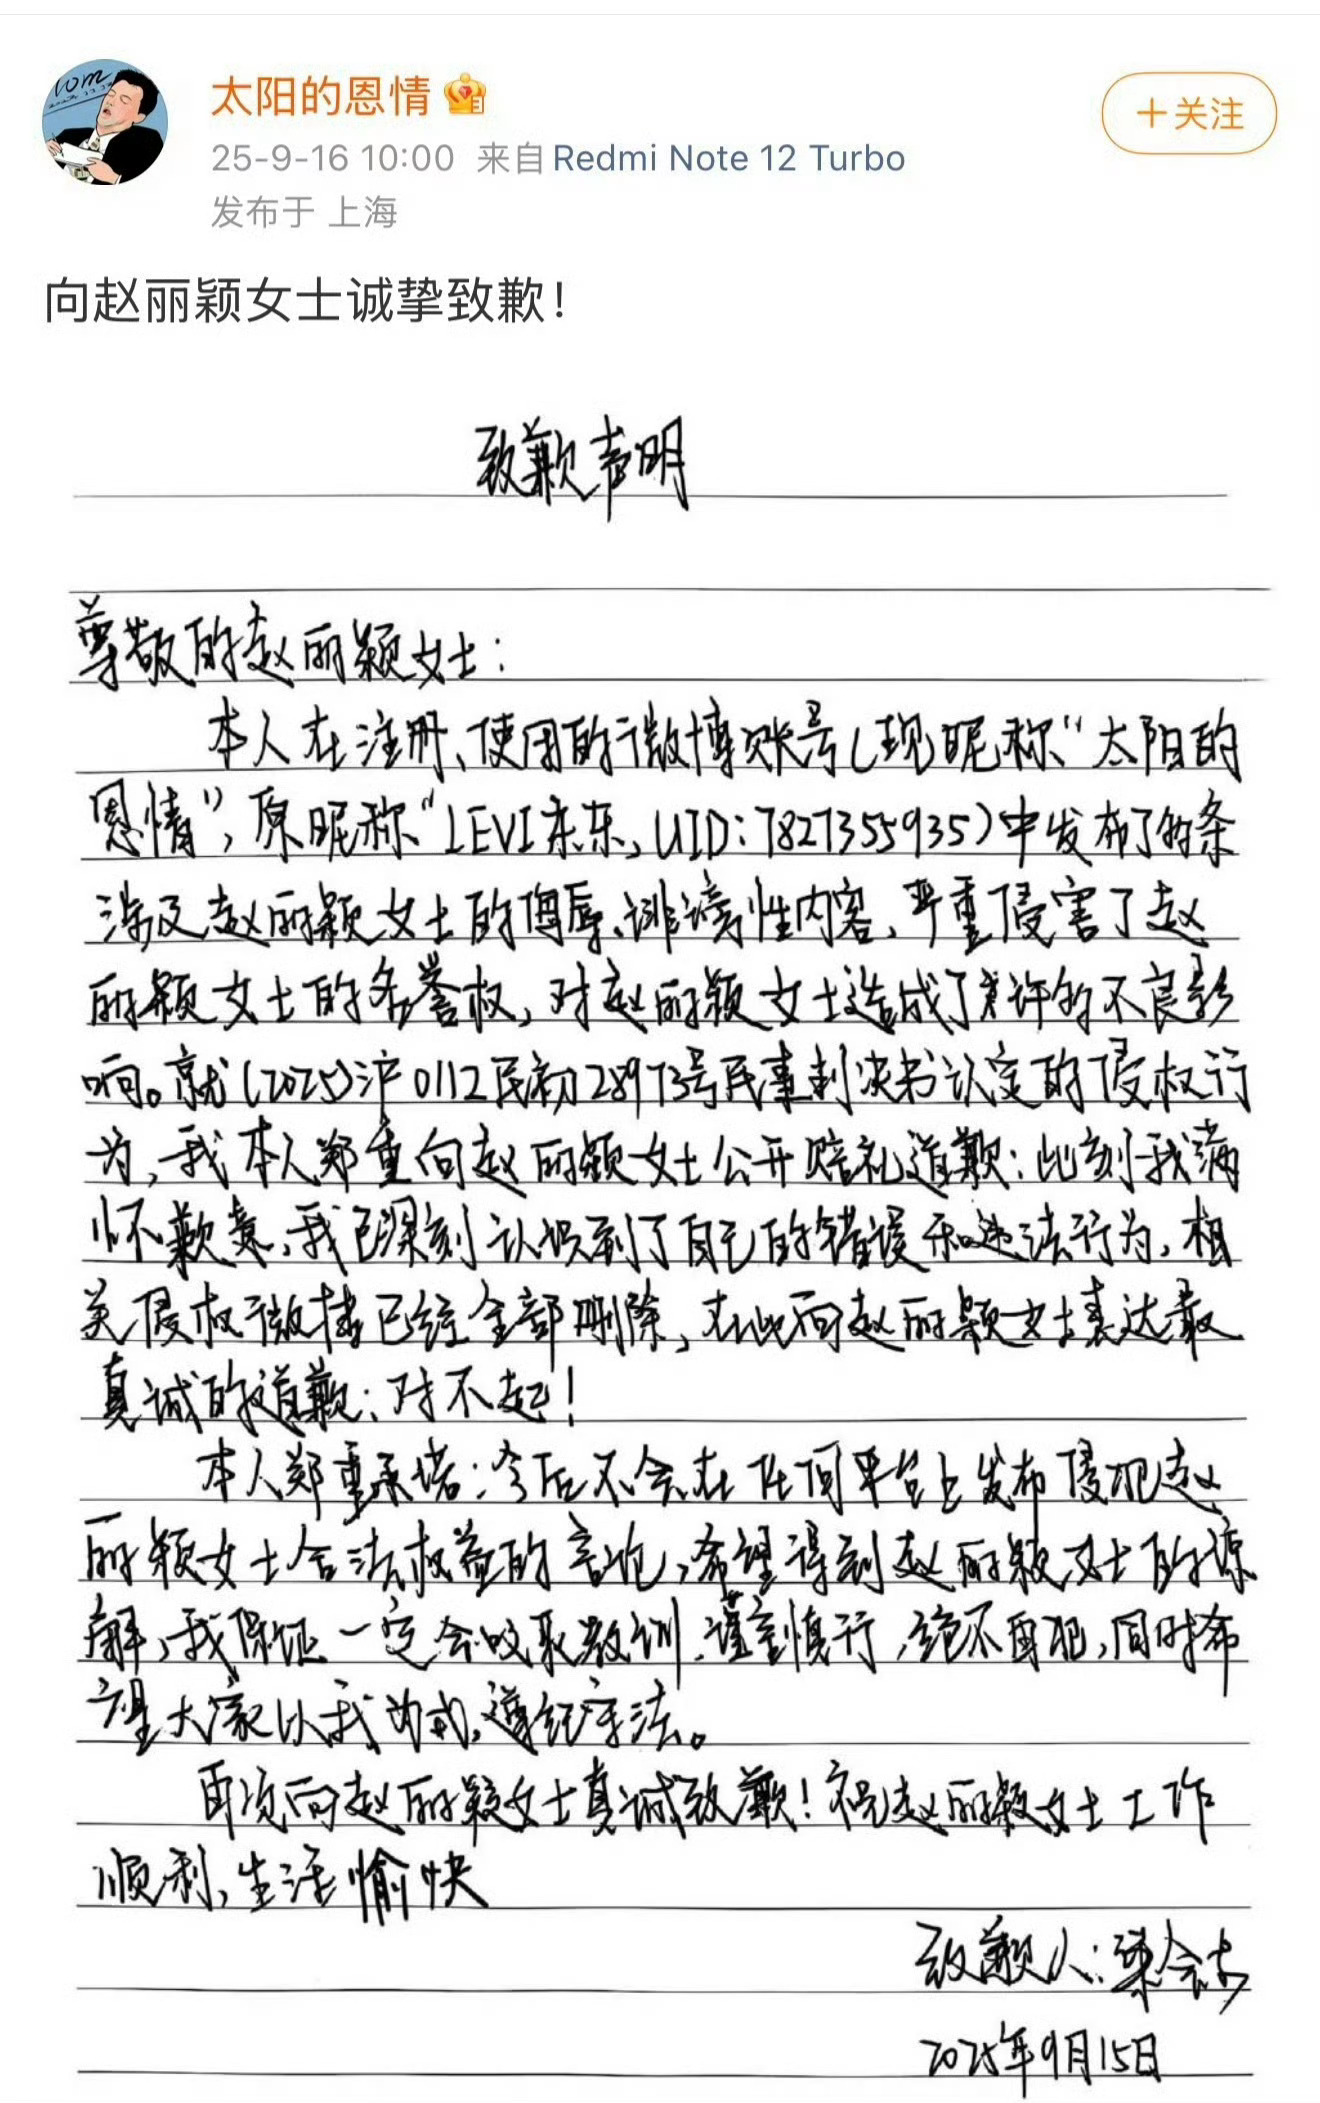 太阳的恩情
+关注
25-9-16 10:00 来自 Redmi Note 12 Turbo
发布于 上海
向赵丽颖女士诚挚致歉!
致歉声明
尊敬的赵丽颖女士:
本人在注册、使用的微博账号(现昵称“太阳的
恩情”,原昵称“LEVI东东,UID:7827355935)中发布了的条
涉及赵丽颖女士的侮辱、诽谤性内容,严重侵害了赵
丽颖女士的名誉权,对赵丽颖女士造成了某许的不良影
响。就(2025)沪0112民初28973号民事判决书认定的侵权行
为,我本人郑重向赵丽颖女士公开赔礼道歉:此刻我满
怀歉意,我已深刻认识到了自己的错误和违法行为,相
关侵权微博已经全部删除,在此向赵丽颖女士表达最
真诚的道歉:对不起!
本人郑重承诺:今后不会在任何平台上发布侵犯赵
丽颖女士合法权益的言论,希望得到赵丽颖女士的谅
解,我保证一定会吸取教训、谨言慎行,绝不再犯,同时希
望大家以我为戒,遵纪守法。
再次向赵丽颖女士真诚致歉!祝赵丽颖女士工作
顺利,生活愉快
致歉人:梁会
2025年9月15日